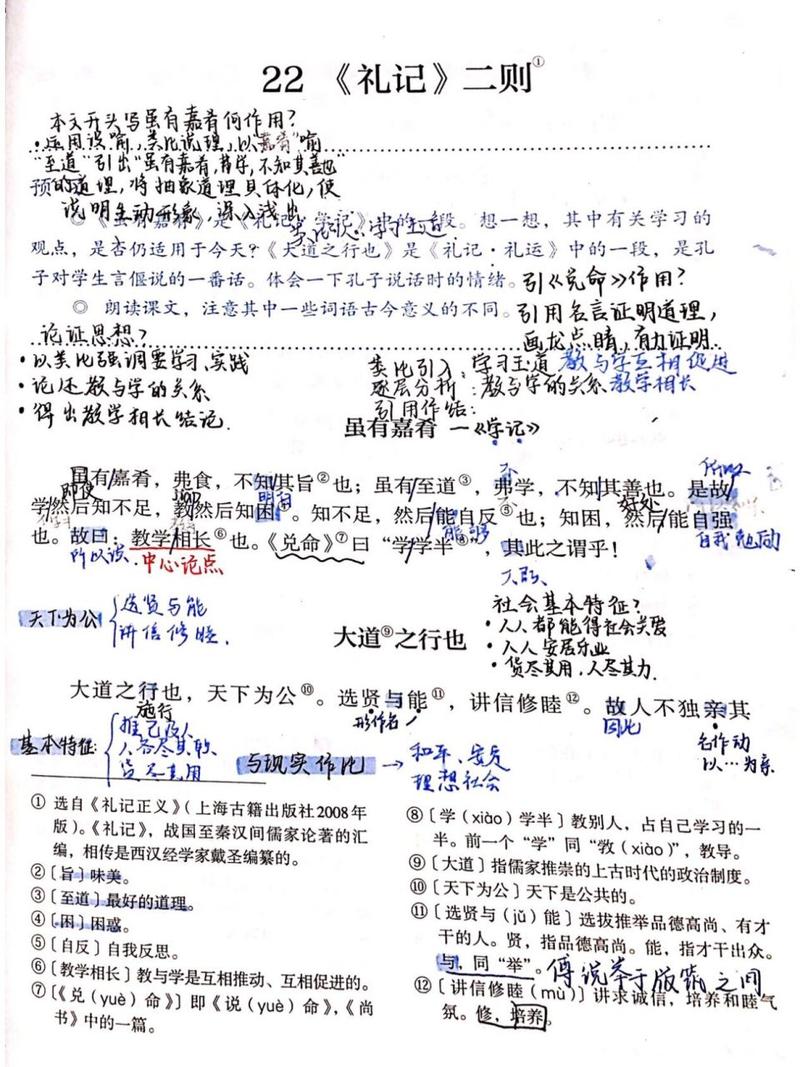 22 《礼记》二则①
本文开头写虽有嘉肴何作用?
·运用设喻,类比说理,以“嘉肴”喻
“至道”引出“虽有嘉肴,弗学,不知其善也”
预 的道理,将抽象道理具体化,使
说明生动形象,深入浅出
◎《虽有嘉肴》是《礼记·学记》中的一段。想一想,其中有关学习的
观点,是否仍适用于今天?《大道之行也》是《礼记·礼运》中的一段,是孔
子对学生言偃说的一番话。体会一下孔子说话时的情绪。
引《兑命》作用?
◎ 朗读课文,注意其中一些词语古今意义的不同。
引用名言证明道理,
画龙点睛,有力证明
论证思想?
·以类比强调要学习、实践
·论述教与学的关系
·得出教学相长结论.
类比引入:学习至道 教与学互相促进
逐层分析:教与学的关系 教学相长
引用作结:
虽有嘉肴 —《学记》
虽有嘉肴,弗食,不知其旨②也;虽有至道③,弗学,不知其善也。是故
即使 明白 不 所以 好处
学然后知不足,教然后知困④。知不足,然后能自反⑤也;知困,然后能自强
能够 自我勉励
也。故曰:教学相长⑥也。《兑命》⑦曰“学学半⑧”,其此之谓乎!
所以说. 中心论点
天下为公 选贤与能
讲信修睦.
社会基本特征?
·人人都能得社会关爱
·人人安居乐业
·货尽其用,人尽其力.
大道⑨之行也
大道之行也,天下为公⑩。选贤与能⑪,讲信修睦⑫。故人不独亲其
施行 形作名 因此 名作动
以…为亲
基本特征: 推己及人
人各尽其职
货尽其用
与现实作比 → 和平、安定
理想社会
① 选自《礼记正义》(上海古籍出版社2008年
版)。《礼记》,战国至秦汉间儒家论著的汇
编,相传是西汉经学家戴圣编纂的。
②〔旨〕味美。
③〔至道〕最好的道理。
④〔困〕困惑。
⑤〔自反〕自我反思。
⑥〔教学相长〕教与学是互相推动、互相促进的。
⑦〔《兑(yuè)命》〕即《说(yuè)命》,《尚
书》中的一篇。
⑧〔学(xiào)学半〕教别人,占自己学习的一
半。前一个“学”同“敩(xiào)”,教导。
⑨〔大道〕指儒家推崇的上古时代的政治制度。
⑩〔天下为公〕天下是公共的。
⑪〔选贤与(jǔ)能〕选拔推举品德高尚、有才
干的人。贤,指品德高尚。能,指才干出众。
与,同“举”。 傅说举于版筑之间
⑫〔讲信修睦(mù)〕讲求诚信,培养和睦气
氛。修,培养。